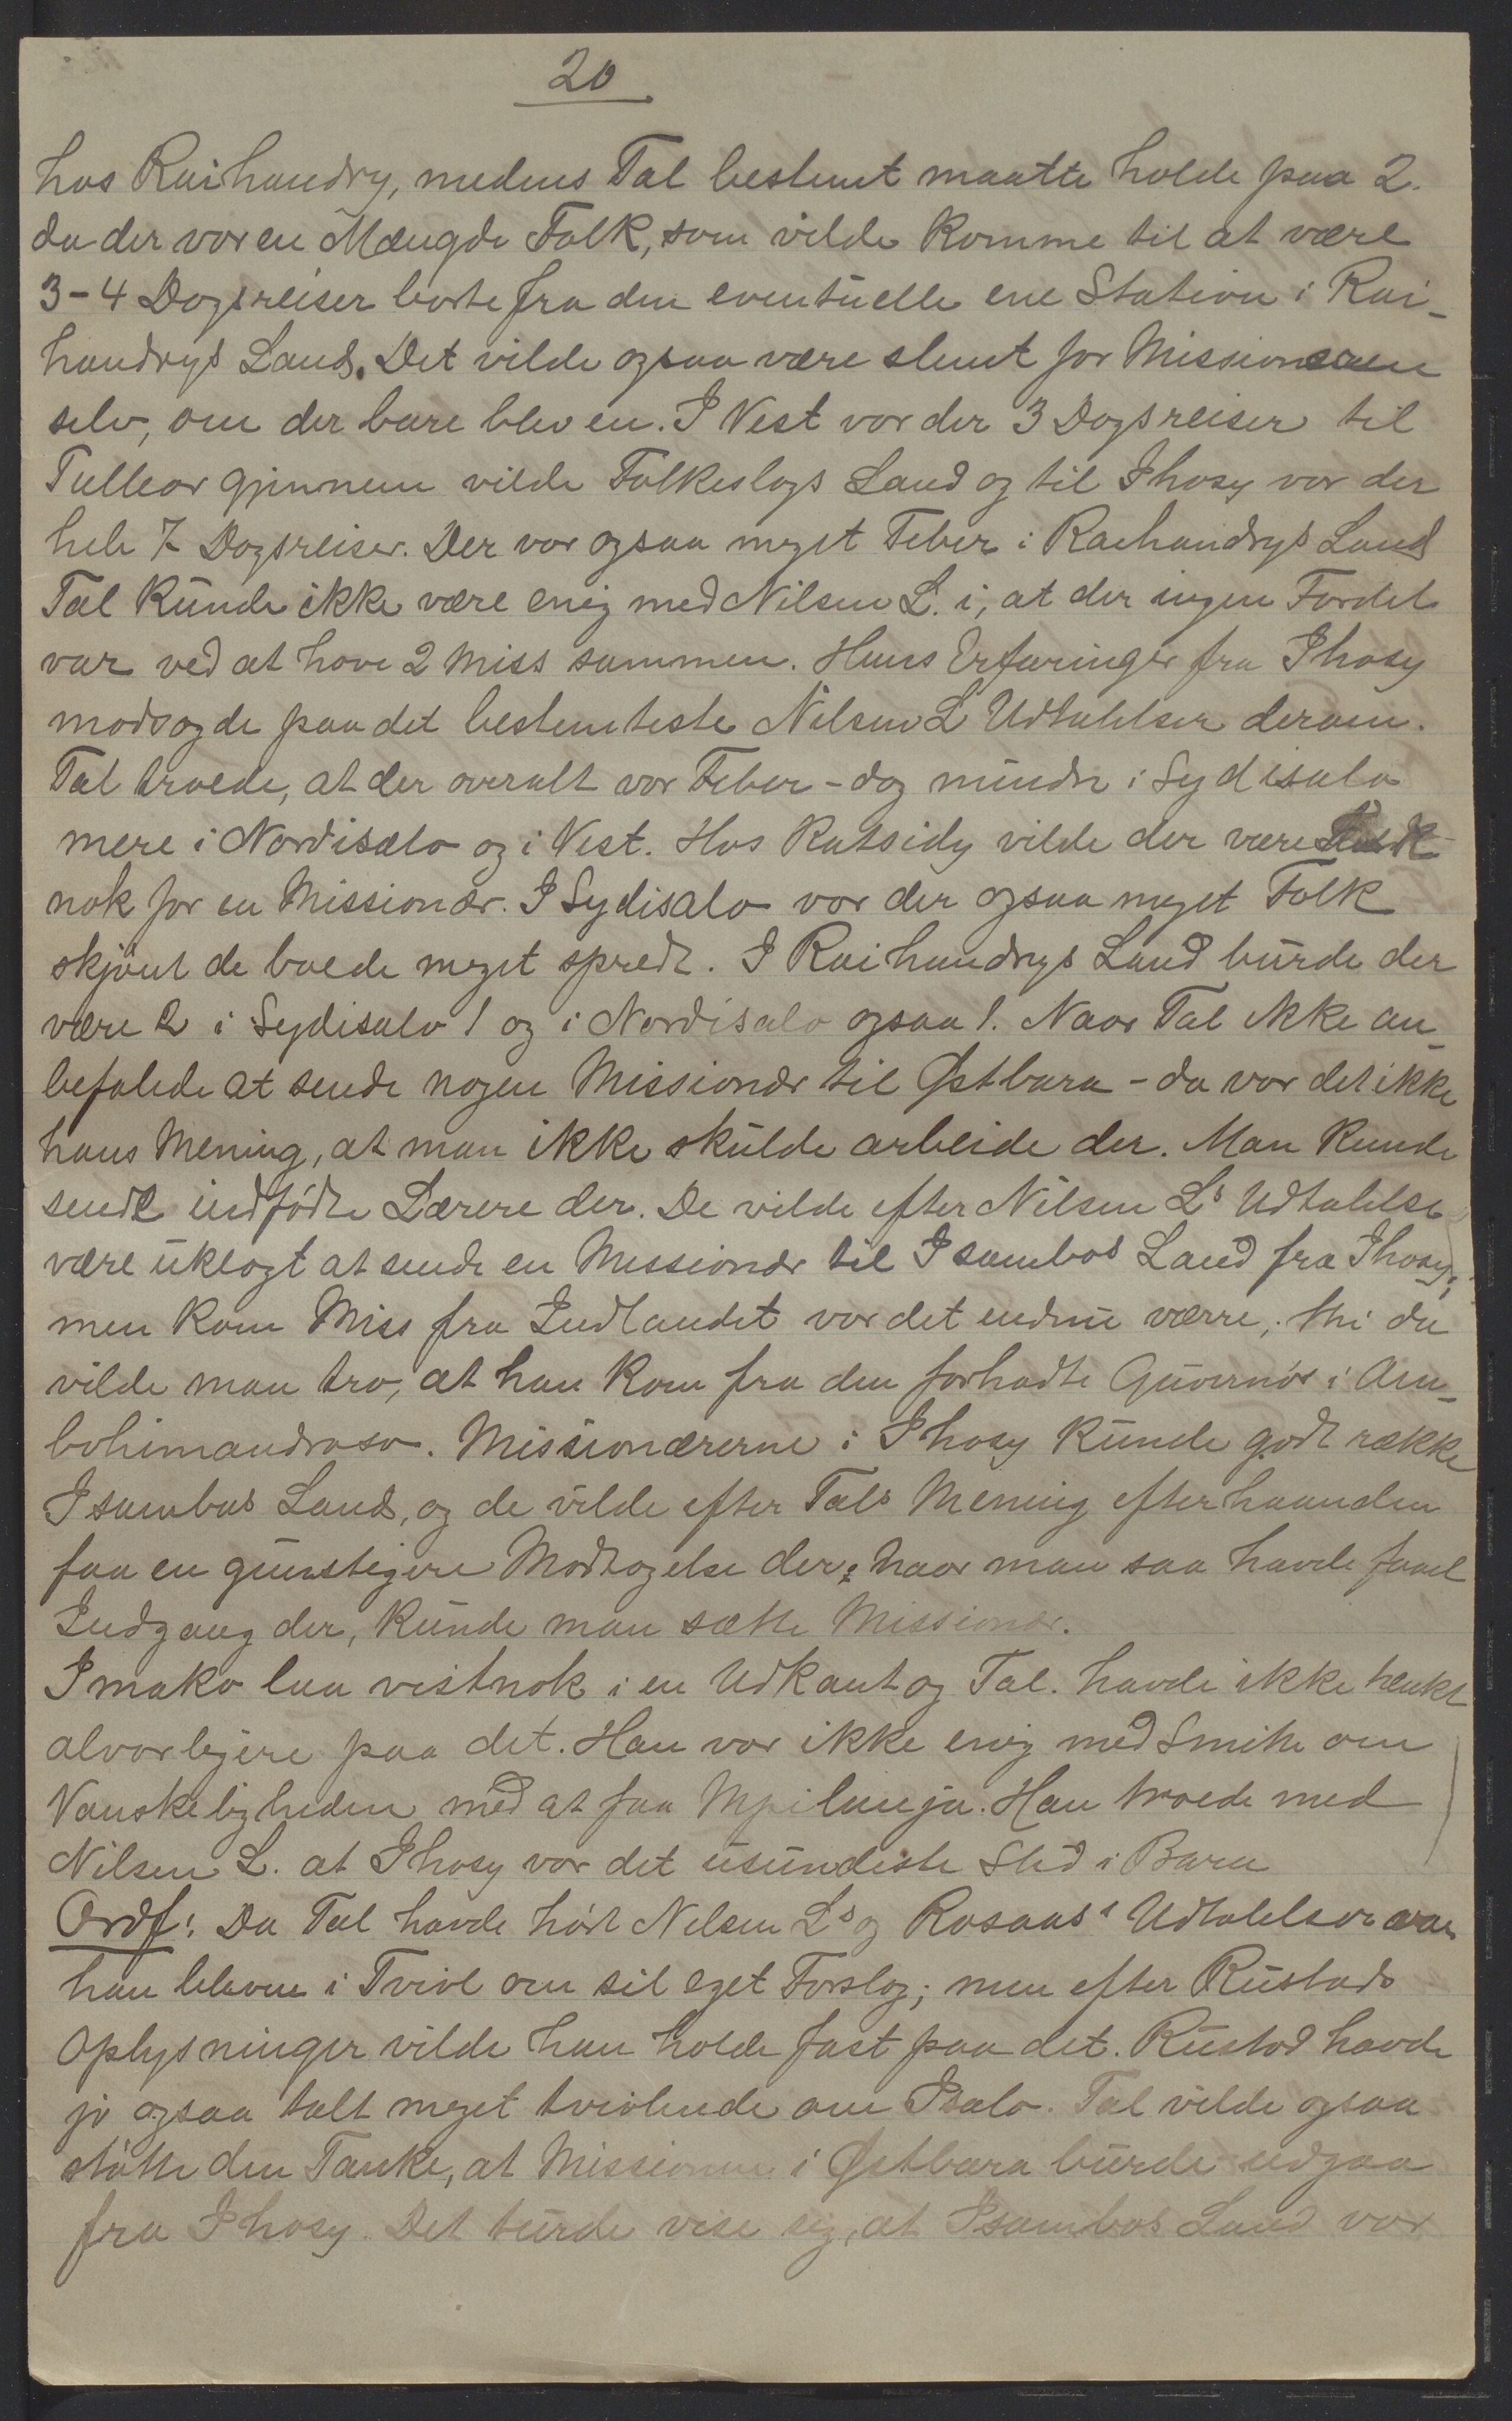 20
hos Raihandry, medens Tal bestemt maatte holde paa 2.
da der var en Mængde Folk, som vilde komme til at være
3-4 Dagsreiser borte fra den eventuelle ene Station i Rai-
handrys Land. Det vilde ogsaa være slemt for Missionæren
selv, om der bare blev en. I Vest var der 3 Dagsreiser til
Tullear gjennem vilde Folkeslags Land og til Ihosy var der
hele 7 Dagsreiser. Der var ogsaa meget Feber i Raehandrys Land
Tal kunde ikke være enig med Nilsen L. i, at der ingen Fordel
var ved at have 2 Miss sammen. Hans Erfaringer fra Ihosy
modsagde paa det bestemteste Nilsen L Udtalelser derom.
Tal troede, at der overalt var Feber - dog mindre i Sydisalo
mere i Nordisalo og i Vest. Hos Ratsidy vilde der være Folk
nok for en Missionær. I Sydisalo var der ogsaa meget Folk
skjønt de boede meget spredt. I Raihandrys Land burde der
være 2 i Sydisalo 1 og i Nordisalo ogsaa 1. Naar Tal ikke an-
befalede at sende nogen Missionær til Østbara - da var det ikke
hans Mening, at man ikke skulde arbeide der. Man kunde
sende indfødte Lærere der. De vilde efter Nilsen Ls Udtalelse
være uklogt at sende en Missionær til Isambos Land fra Ihosy;
men kom Miss fra Indlandet var det endnu værre, thi da
vilde man tro, at han kom fra den forhadte Guvernør i Am-
bohimandroso. Missionærerne i Ihosy kunde godt række
Isambos Land, og de vilde efter Tals Mening efterhaanden
faa en gunstigere Modtagelse der; naar man saa havde faaet
Indgang der, kunde man sætte Missionær.
Imako laa vistnok i en Udkant og Tal. havde ikke tænkt
alvorligere paa det. Han var ikke enig med Smith om
Vanskeligheden med at faa Mpilanja. Han troede med
Nilsen L. at Ihosy var det usundeste Sted i Bara
Ordf: Da Tal havde hørt Nilsen Ls og Rosaas' Udtalelser var
han bleven i Tvivl om sit eget Forslag; men efter Rustads
Oplysninger vilde han holde fast paa det. Rustad havde
jo ogsaa talt meget tvivlende om Isalo. Tal vilde ogsaa
støtte den Tanke, at Missionen i Østbara burde udgaa
fra Ihosy. Det turde vise sig, at Isambos Land var